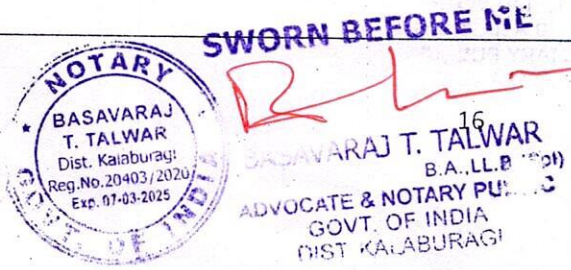 SWORN BEFORE ME
NOTARY
BASAVARAJ
T. TALWAR
Dist. Kalaburagi
Reg.No.20403/2020
Exp. 07-03-2025
GOVT. OF INDIA
16
BASAVARAJ T. TALWAR
B.A.,LL.B
ADVOCATE & NOTARY PUBLIC
GOVT. OF INDIA
DIST KALABURAGI